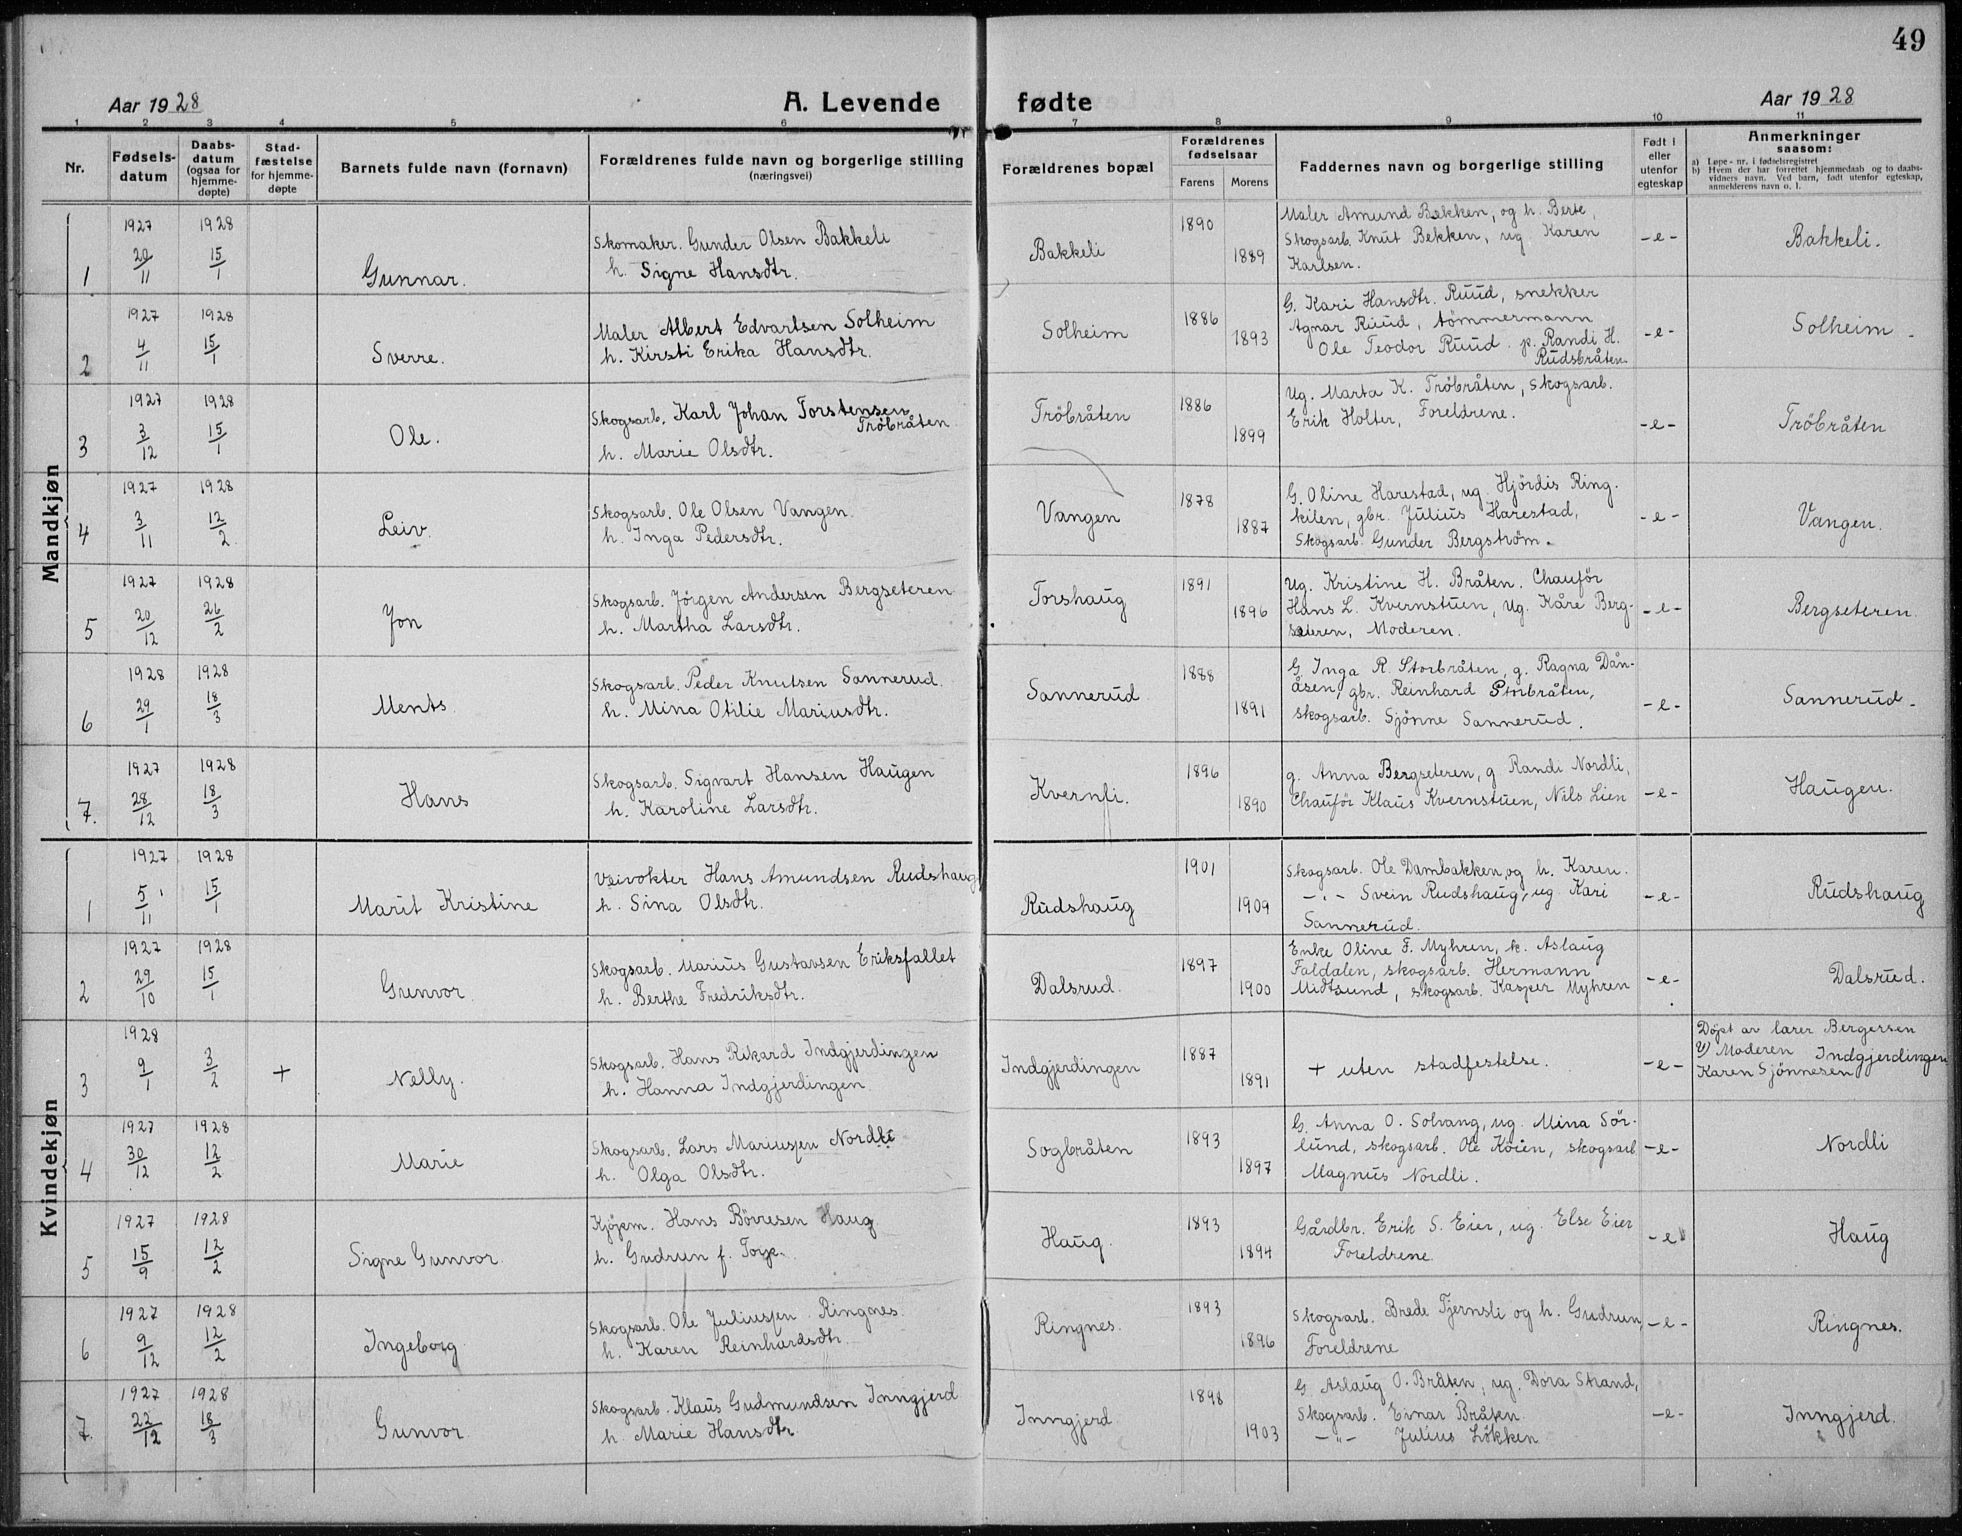 49
Aar 1928
A. Levende fødte
Aar 1928
1 2 3 4 5 6 7 8 9 10 11
Nr.
Fødsels-
datum
Daabs-
datum
(ogsaa for
hjemme-
døpte)
Stad-
fæstelse
for hjemme-
døpte
Barnets fulde navn (fornavn)
Forældrenes fulde navn og borgerlige stilling
(næringsvei)
Forældrenes bopæl
Forældrenes
fødselsaar
Farens Morens
Faddernes navn og borgerlige stilling
Født i
eller
utenfor
egteskap
Anmerkninger
saasom:
a) Løpe-nr. i fødselsregistret
b) Hvem der har forrettet hjemmedaab og to daabs-
vidners navn. Ved barn, født utenfor egteskap,
anmelderens navn o. l.
Mandkjøn
1
1927 20/11
1928 15/1
Gunnar.
Skomaker. Gunder Olsen Bakkeli
h. Signe Hansdtr.
Bakkeli
1890
1889
Maler Amund Bekken, og h. Berte,
Skogsarb. Knut Bekken, ug. Karen
Karlsen.
-e-
Bakkeli.
2
1927 4/11
1928 15/1
Sverre.
Maler Albert Edvartsen Solheim
h. Kirsti Erika Hansdtr.
Solheim
1886
1893
G. Kari Hansdtr. Ruud, snekker
Agnar Ruud, tømmermann
Ole Teodor Ruud. p. Randi H.
Rudsbråten.
-e-
Solheim
3
1927 3/12
1928 15/1
Ole.
Skogsarb. Karl Johan Torstensen
Tröbråten
h. Marie Olsdtr.
Tröbråten
1886
1899
Ug. Marta K. Tröbråten, skogsarb.
Erik Holter, Foreldrene.
-e-
Tröbråten
4
1927 3/11
1928 12/2
Leiv.
Skogsarb. Ole Olsen Vangen.
h. Inga Pedersdtr.
Vangen
1878
1887
G. Oline Harestad, ug. Hjördis Ring-
kilen, gbr. Julius Harestad,
Skogsarb. Gunder Bergström.
-e-
Vangen.
5
1927 20/12
1928 26/2
Jon
Skogsarb. Jörgen Andersen Bergseteren
h. Martha Larsdtr.
Torshaug
1891
1896
Ug. Kristine H. Bråten. Chauför
Hans L. Kvernstuen, ug. Kåre Berg-
seteren, Moderen.
-e-
Bergseteren.
6
1928 29/1
1928 18/3
Ments.
Skogsarb. Peder Knutsen Sannerud.
h. Mina Otilie Mariusdtr.
Sannerud
1888
1891
G. Inga R. Storbråten, g. Ragna Dån-
åsen, gbr. Reinhard Storbråten,
skogsarb. Sjönne Sannerud.
-e-
Sannerud.
7.
1927 28/12
1928 18/3
Hans
Skogsarb. Sigvart Hansen Haugen
h. Karoline Larsdtr.
Kvernli.
1896
1890
g. Anna Bergseteren, g Randi Nordli,
Chauför Klaus Kvernstuen, Nils Lien
-e-
Haugen.
Kvindekjøn
1
1927 5/11
1928 15/1
Marit Kristine
Veivokter Hans Amundsen Rudshaug
h. Sina Olsdtr.
Rudshaug
1901
1909
Skogsarb. Ole Dambakken, og h. Karen.
-"- Svein Rudshaug, ug. Kari
Sannerud.
-e-
Rudshaug
2
1927 29/10
1928 15/1
Gunvor.
Skogsarb. Marius Gustavsen Eriksfallet
h. Berthe Fredriksdtr.
Dalsrud.
1897
1900
Enke Oline F. Myhren, k. Aslaug
Faldalen, skogsarb. Hermann
Midtsund, skogsarb. Kasper Myhren
-e-
Dalsrud.
3
1928 9/1
3/2
+
Nelly.
Skogsarb. Hans Rikard Indgjerdingen
h. Hanna Indgjerdingen
Indgjerdingen
1887
1891
+ uten stadfestelse.
-e-
Døpt av lærer Bergersen
V) Moderen Indgjerdingen
Karen Sjönnesen
4
1927 30/12
1928 12/2
Marie
Skogsarb. Lars Mariussen Nordli
h. Olga Olsdtr.
Sogbråten
1893
1897
G. Anna O. Solvang, ug. Mina Sör-
lund, skogsarb. Ole Köien, skogsarb
Magnus Nordli.
-e-
Nordli
5
1927 15/9
1928 12/2
Signe Gunvor.
Kjöpm. Hans Bövresen Haug
h. Gudrun f.
Haug.
1893
1894
Gårdbr. Erik S. Eier, ug. Else Eier
Foreldrene.
-e-
Haug
6
1927 9/12
1928 12/2
Ingeborg
Skogsarb. Ole Juliussen Ringnes.
h. Karen Reinhardsdtr.
Ringnes.
1893
1896
Skogsarb. Brede Tjernsli og h. Gudrun,
Foreldrene
-e-
Ringnes.
7.
1927 22/12
1928 18/3
Gunvor.
Skogsarb. Klaus Gudmundsen Inngjerd
h. Marie Hansdtr.
Inngjerd.
1898
1903
G. Aslaug O. Bråten, ug. Dora Strand,
Skogsarb. Einar Bråten.
-"- Julius Lökken
-e-
Inngjerd.